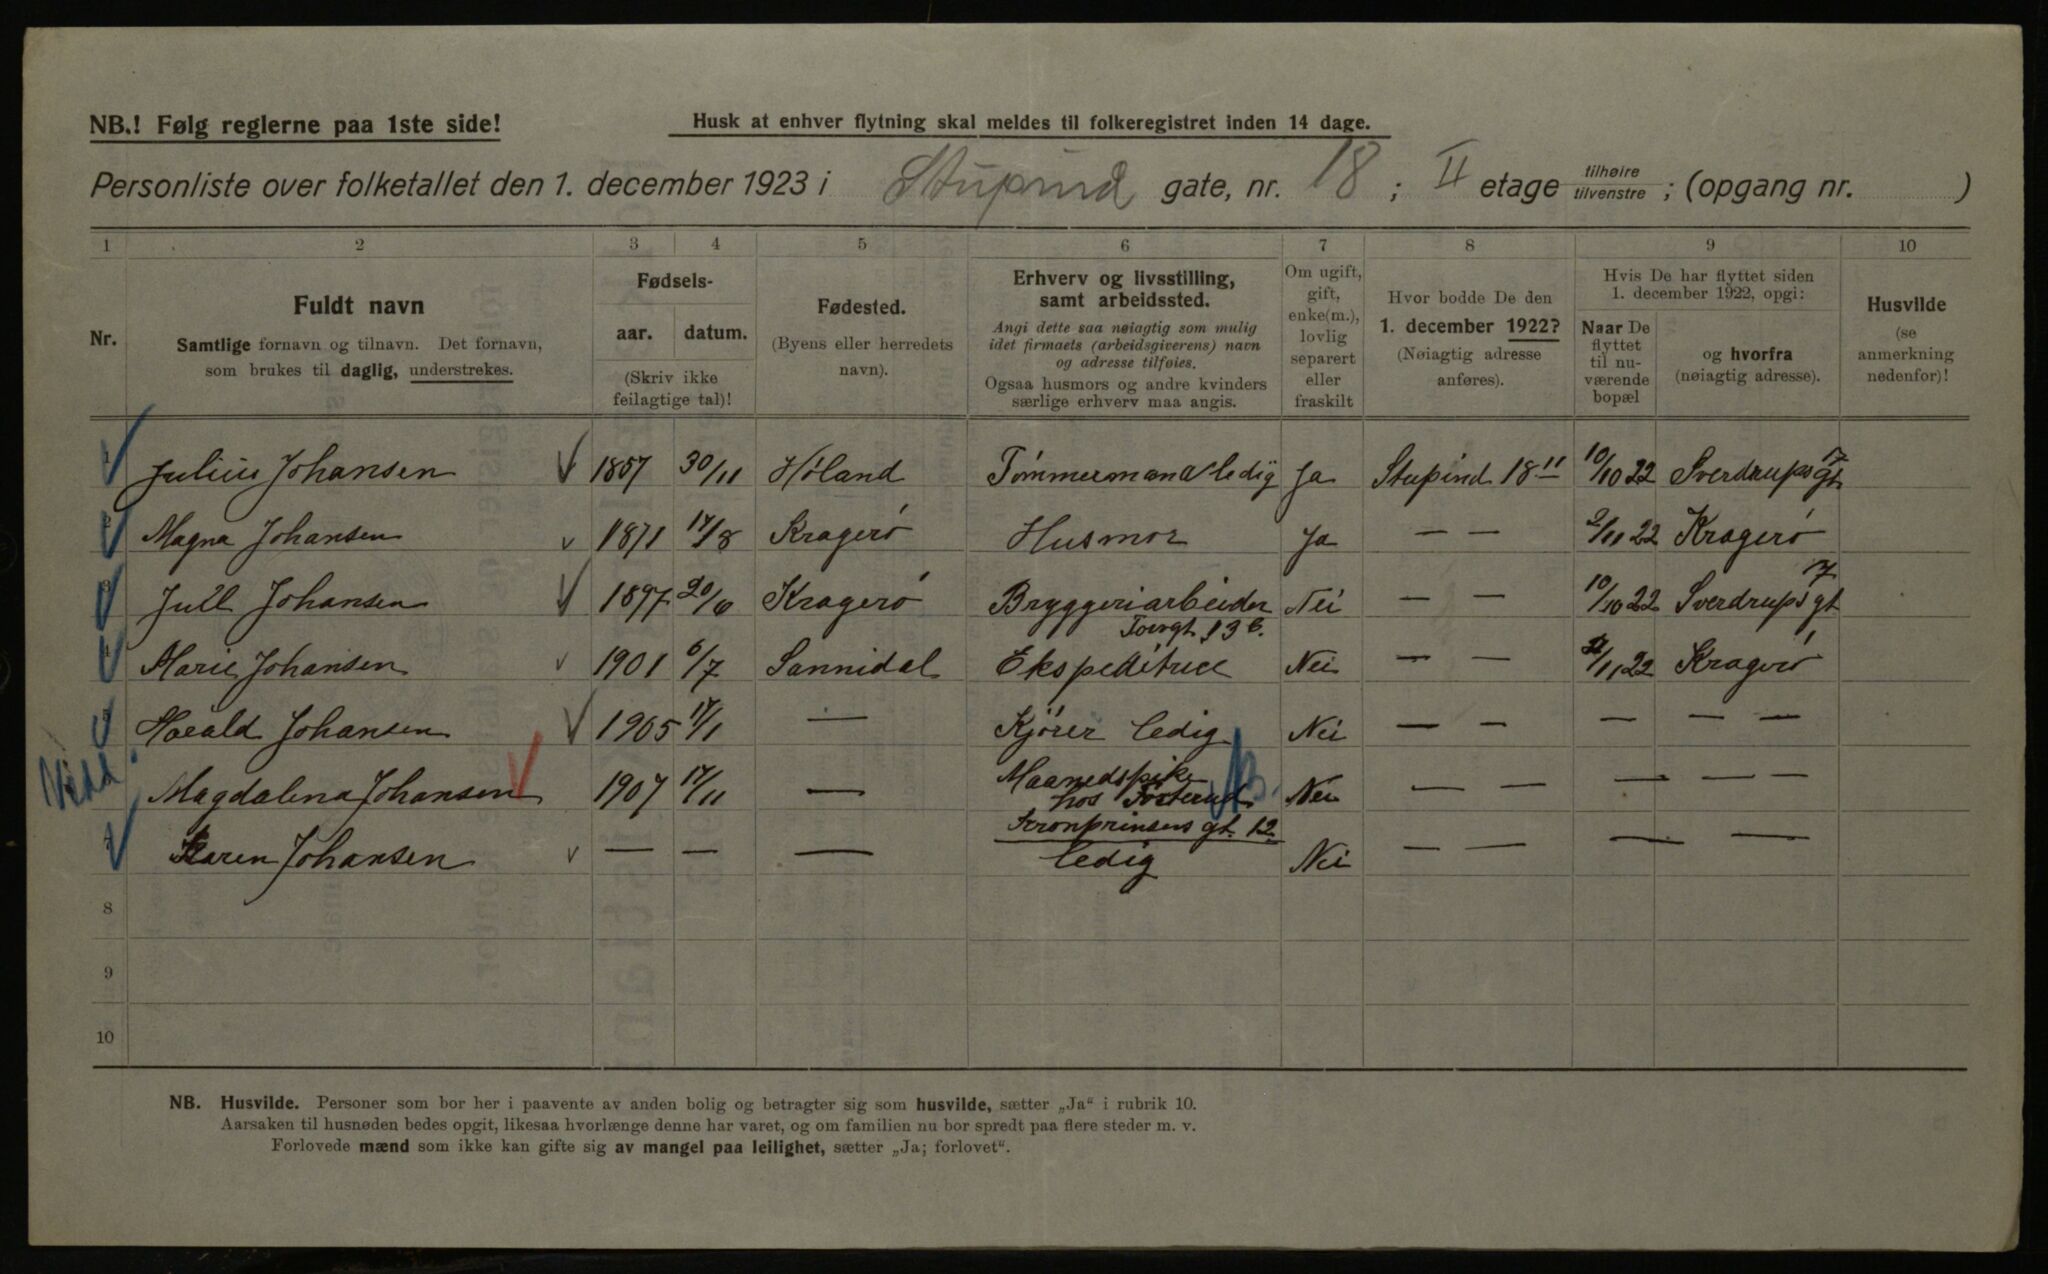 NB.! Følg reglerne paa 1ste side!
Husk at enhver flytning skal meldes til folkeregistret inden 14 dage.
Personliste over folketallet den 1. december 1923 i Stupind gate, nr. 18 ; II etage tilhøire tilvenstre ; (opgang nr. )
1 2 3 4 5 6 7 8 9 10
Nr.
Fuldt navn
Samtlige fornavn og tilnavn. Det fornavn,
som brukes til daglig, understrekes.
Fødsels-
aar. datum.
(Skriv ikke
feilagtige tal)!
Fødested.
(Byens eller herredets
navn).
Erhverv og livsstilling,
samt arbeidssted.
Angi dette saa nøiagtig som mulig
idet firmaets (arbeidsgiverens) navn
og adresse tilføies.
Ogsaa husmors og andre kvinders
særlige erhverv maa angis.
Om ugift,
gift,
enke(m.),
lovlig
separert
eller
fraskilt
Hvor bodde De den
1. december 1922?
(Nøiagtig adresse
anføres).
Hvis De har flyttet siden
1. december 1922, opgi:
Naar De
flyttet
til nu-
værende
bopæl
og hvorfra
(nøiagtig adresse).
Husvilde
(se
anmerkning
nedenfor)!
1 Julius Johansen 1857 30/11 Høland Tømmermand ledig Ja Stupind 18 II 10/10 22 Sverdrups gt 17
2 Magna Johansen 1871 17/8 Kragerø Husmor Ja — — 2/11 22 Kragerø
3 Jull Johansen 1897 20/6 Kragerø Bryggeriarbeider Nei — — 10/10 22 Sverdrups gt 17
Torvgt 13 b.
4 Marie Johansen 1901 6/7 Sannidal Ekspeditrice Nei — — /11 22 Kragerø
5 Harald Johansen 1905 17/1 — Kjører ledig Nei — — — — —
Magdalena Johansen 1907 17/11 — Maanedspike Nei — — — — —
hos Fosterud NB.
Kronprinsens gt. 12
7 Karen Johansen — — — ledig Nei — — — —
8
9
10
NB. Husvilde. Personer som bor her i paavente av anden bolig og betragter sig som husvilde, sætter „Ja“ i rubrik 10.
Aarsaken til husnøden bedes opgit, likesaa hvorlænge denne har varet, og om familien nu bor spredt paa flere steder m. v.
Forlovede mænd som ikke kan gifte sig av mangel paa leilighet, sætter „Ja; forlovet“.